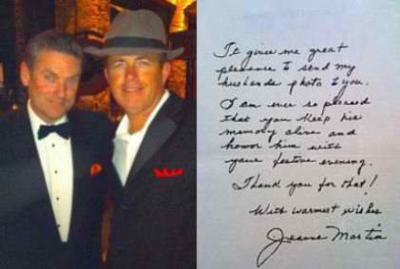 It gives me great
pleasure to send my
husbands photo to you.
I am ever so pleased
that you keep his
memory alive and
honor him with
your festive evening.
Thank you for that!
With warmest wishes
Jeanne Martin